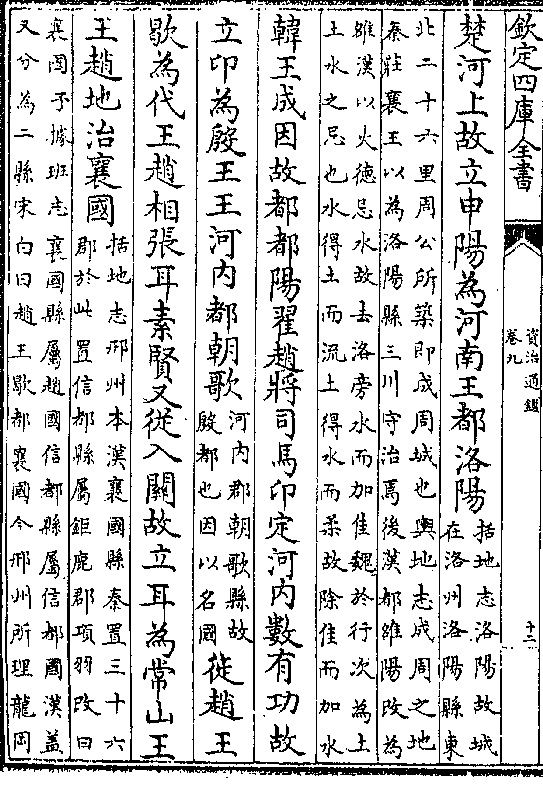 欽定四庫全書
資治通鑑
卷九
十二
楚河上故立申陽為河南王都洛陽
括地志洛陽故城
在洛州洛陽縣東
北二十六里周公所築即成周城也輿地志成周之地
秦莊襄王以為洛陽縣三川守治焉後漢都雒陽改為
雒漢以火德忌水故去洛旁水而加隹魏於行次為土
土水之忌也水得土而流土得水而柔故除隹而加水
韓王成因故都都陽翟趙將司馬卬定河内數有功故
立卬為殷王王河内都朝歌
河内郡朝歌縣故
殷都也因以名國
徙趙王
歇為代王趙相張耳素賢又從入關故立耳為常山王
王趙地治襄國
括地志邢州本漢襄國縣秦置三十六
郡於此置信都縣屬鉅鹿郡項羽改曰
襄國予據班志襄國縣屬趙國信都縣屬信都國漢蓋
又分為二縣宋白曰趙王歇都襄國今邢州所理龍岡